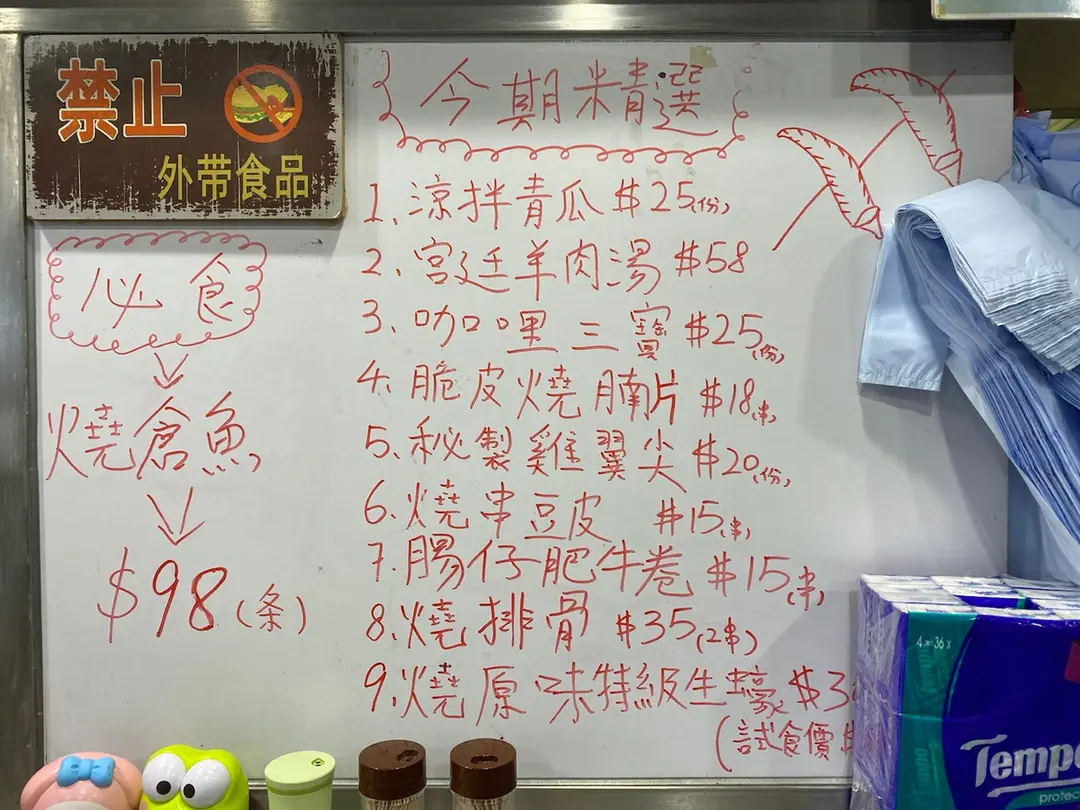 禁止
外带食品
今期精選
1、涼拌青瓜 $25(份)
2、宮廷羊肉湯 $58
3、咖哩三寶 $25(份)
4、脆皮燒腩片 $18(串)
5、秘製雞翼尖 $20(份)
6、燒串豆皮 $15(串)
7、腸仔肥牛卷 $15(串)
8、燒排骨 $35(2串)
9、燒原味特級生蠔 $3
(試食價 $
必食
燒倉魚
$98(条)
4 36x
Temp
protec